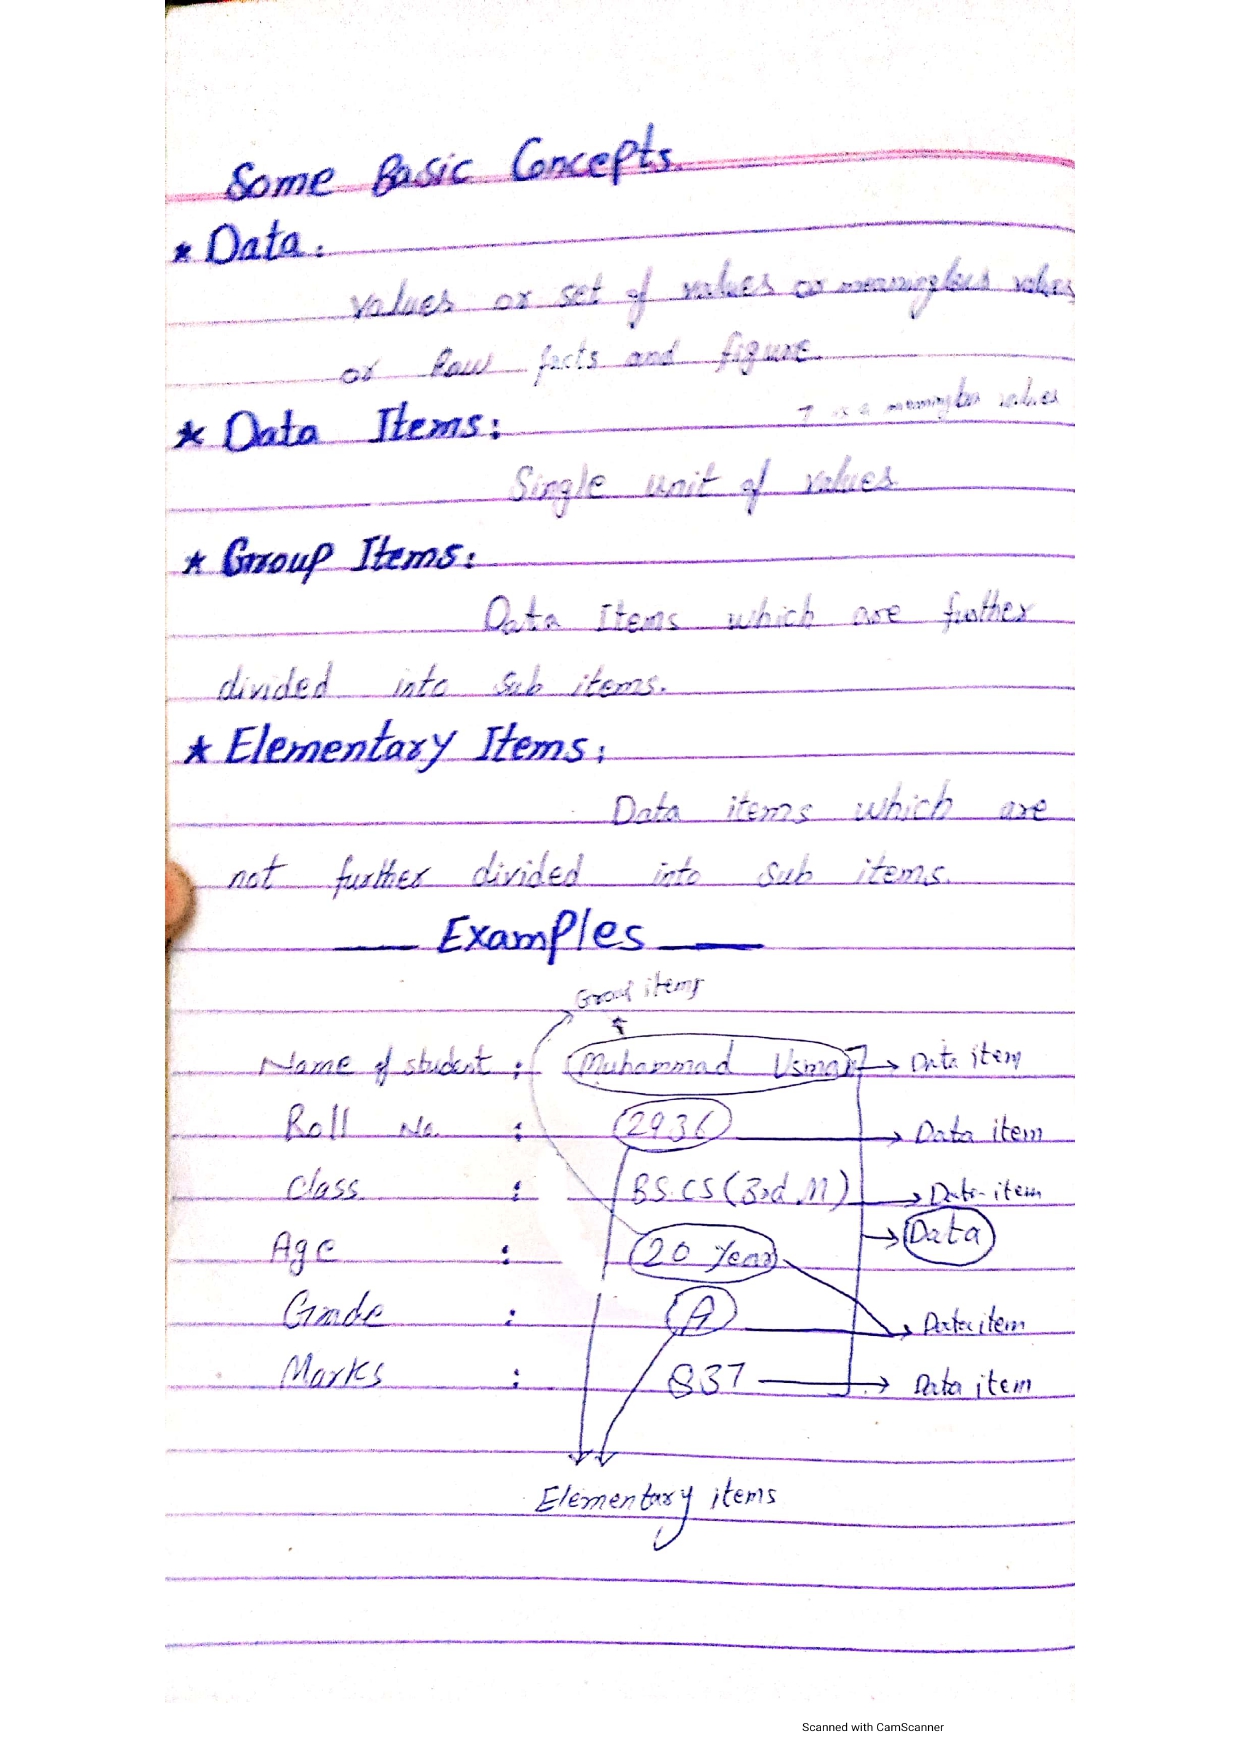 Some Basic Concepts.
★ Data:
values or set of values or meaningless values
or Raw facts and figure.
7 is a meaningless values
★ Data Items:
Single unit of values
★ Group Items:
Data Items which are further
divided into sub items.
★ Elementary Items:
Data items which are
not further divided into sub items.
Examples
Group items
Name of student : Muhammad Usman → Data item
Roll No. : 2936 → Data item
Class : BS.CS (3rd M) → Data item
→ Data
Age : 20 Year
Grade : A → Data item
Marks : 837 → Data item
Elementary items
Scanned with CamScanner